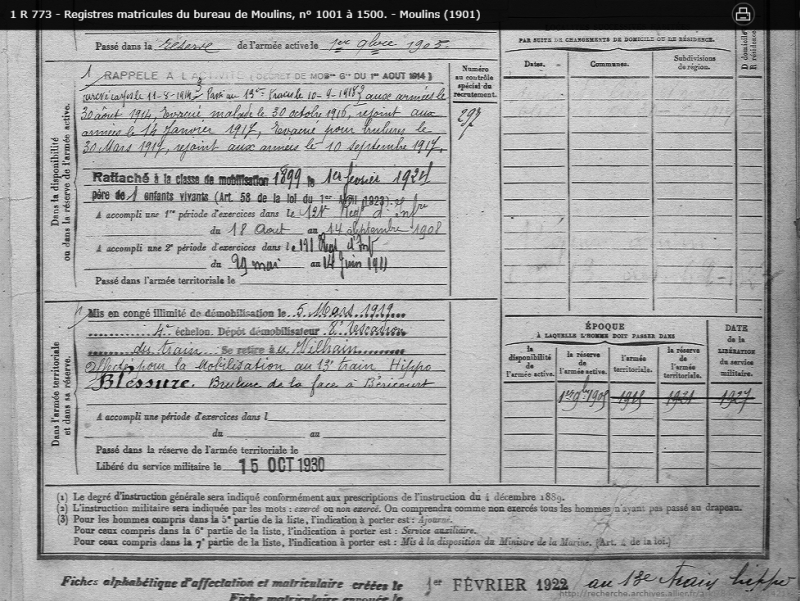 1 R 773 - Registres matricules du bureau de Moulins, n° 1001 à 1500. - Moulins (1901)
Passé dans la réserve de l'armée active le 1er 9bre 1905.
RAPPELÉ À L'ACTIVITÉ (DÉCRET DE MOB° G° DU 1er AOUT 1914)
aux armées le
30 août 1914, Evacué malade le 30 octobre 1916, rejoint aux
armées le 14 Janvier 1917, Evacué pour brulures le
30 Mars 1917, rejoint aux armées le 10 septembre 1917.
Rattaché à la classe de mobilisation 1899 le 1er février 192
père de 1 enfants vivants (Art. 58 de la loi du 1er Avril 1923).
A accompli une 1re période d'exercices dans le 121e Regt d'Infre
du 18 Aout au 14 septembre 1908
A accompli une 2e période d'exercices dans le 121 Regt d'Inf
du 29 mai au 14 Juin 1911
Passé dans l'armée territoriale le
Dans la disponibilité
ou dans la réserve de l'armée active.
Numéro
au contrôle
spécial du
recrutement.
297
PAR SUITE DE CHANGEMENTS DE DOMICILE OU DE RÉSIDENCE.
Dates.
Communes.
Subdivisions
de région.
D. domicile
R. résidence
Mis en congé illimité de démobilisation le 5 Mars 1919
4e échelon. Dépôt démobilisateur 8e Escadron
du train. Se retire à
pour la Mobilisation au 13e train Hippo
Blessure. Brulure de la face à Béricourt
A accompli une période d'exercices dans l
du au
Passé dans la réserve de l'armée territoriale le
Libéré du service militaire le 15 OCT 1930
Dans l'armée territoriale
et dans sa réserve.
ÉPOQUE
À LAQUELLE L'HOMME DOIT PASSER DANS
la
disponibilité
de l'armée
active.
la réserve
de
l'armée active.
l'armée
territoriale.
la réserve
de l'armée
territoriale.
DATE
de la
LIBÉRATION
du service
militaire.
1er 9bre 1905 1915 1921 1927
(1) Le degré d'instruction générale sera indiqué conformément aux prescriptions de l'instruction du 4 décembre 1889.
(2) L'instruction militaire sera indiquée par les mots : exercé ou non exercé. On comprendra comme non exercés tous les hommes n'ayant pas passé au drapeau.
(3) Pour les hommes compris dans la 5e partie de la liste, l'indication à porter est : Ajourné.
Pour ceux compris dans la 6e partie de la liste, l'indication à porter est : Service auxiliaire.
Pour ceux compris dans la 7e partie de la liste, l'indication à porter est : Mis à la disposition du Ministre de la Marine. (Art. 4 de la loi.)
Fiches alphabétique d'affectation et matriculaire créées le 1er FÉVRIER 1922 au 13e train hippo
Fiche matriculaire